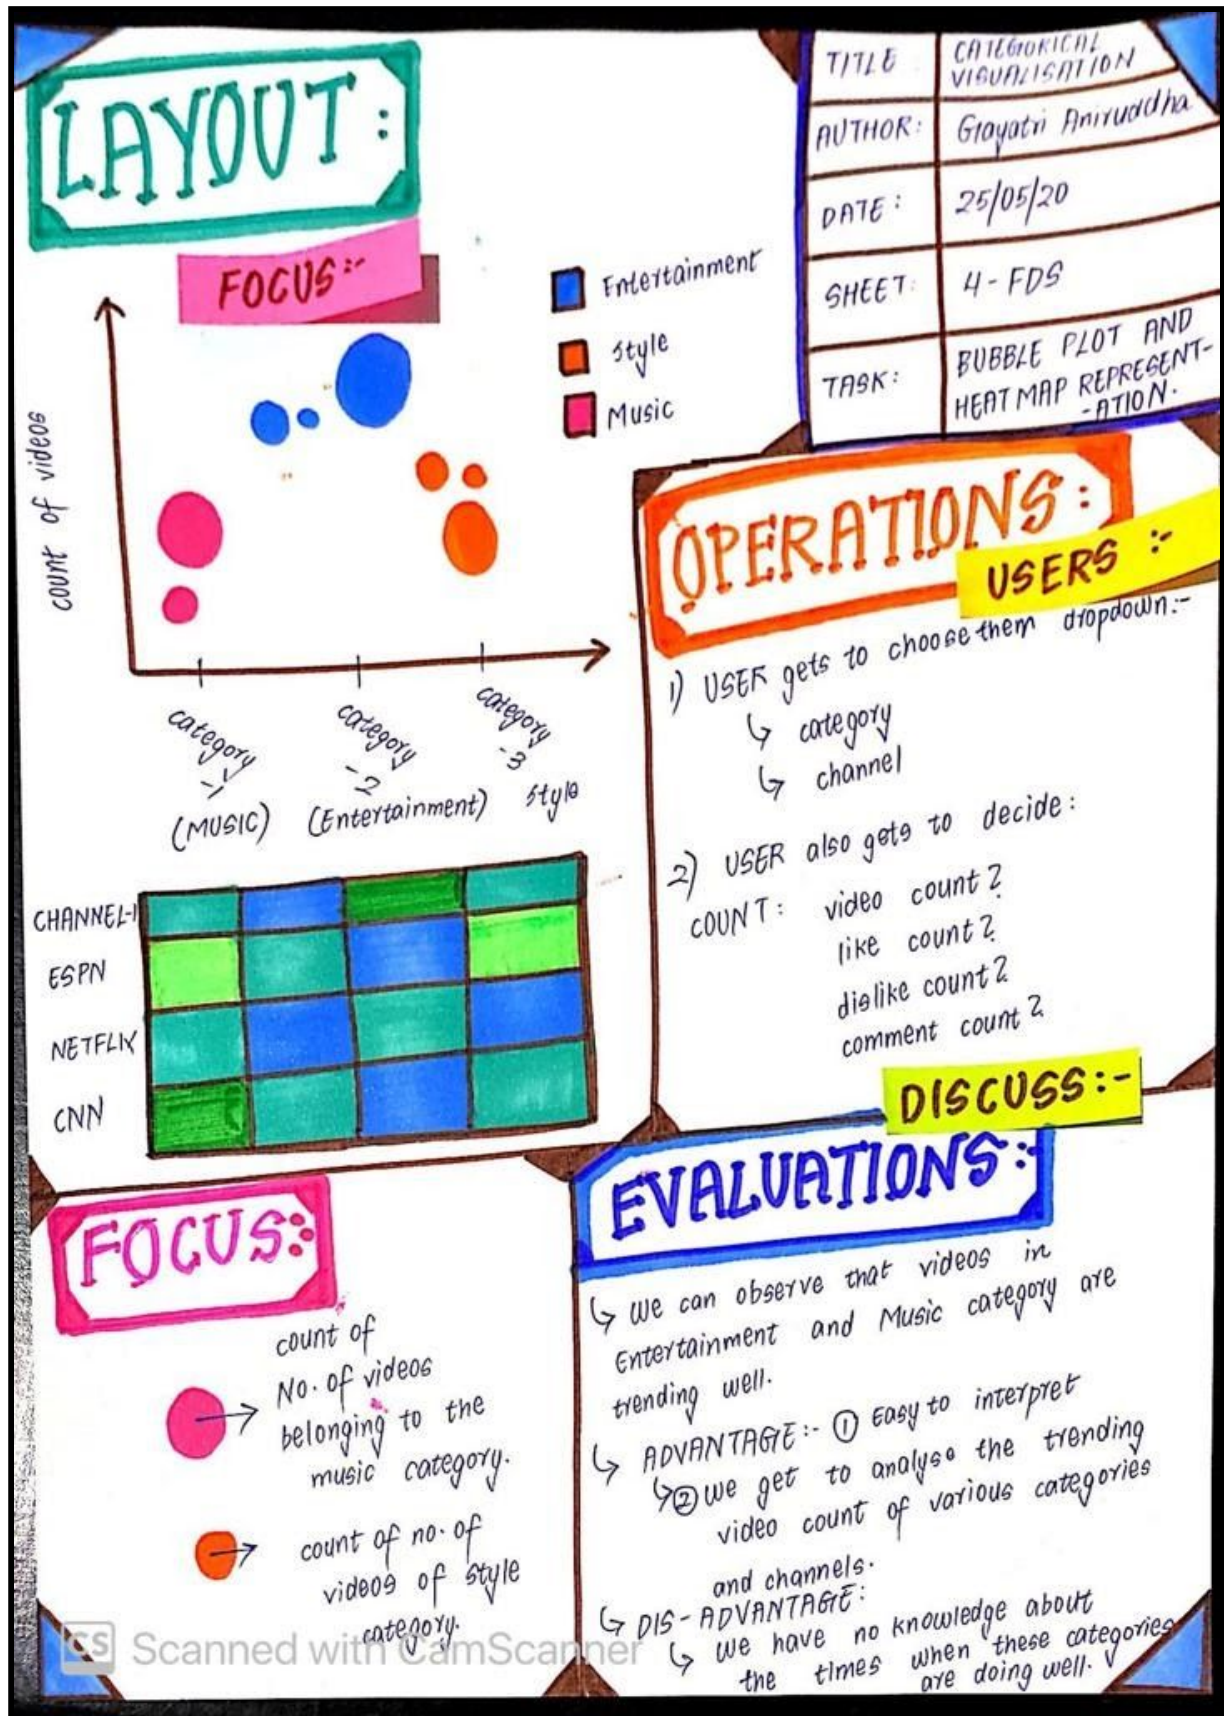 LAYOUT:
FOCUS:-
Entertainment
Style
Music
count of videos
category
-1
(MUSIC)
category
-2
(Entertainment)
category
-3
Style
CHANNEL-1
ESPN
NETFLIX
CNN
TITLE CATEGORICAL
VISUALISATION
AUTHOR: Gayatri Aniruddha
DATE: 25/05/20
SHEET: 4-FDS
TASK: BUBBLE PLOT AND
HEAT MAP REPRESENT-
-ATION.
OPERATIONS:
USERS :-
1) USER gets to choose them dropdown:-
↳ category
↳ channel
2) USER also gets to decide:
COUNT: video count?
like count?
dislike count?
comment count?
FOCUS:
count of
No. of videos
belonging to the
music category.
count of no. of
videos of style
category.
DISCUSS:-
EVALUATIONS:-
↳ We can observe that videos in
Entertainment and Music category are
trending well.
↳ ADVANTAGE:- ① Easy to interpret
↳② we get to analyse the trending
video count of various categories
and channels.
↳ DIS-ADVANTAGE:
↳ we have no knowledge about
the times when these categories
are doing well.
CS Scanned with CamScanner